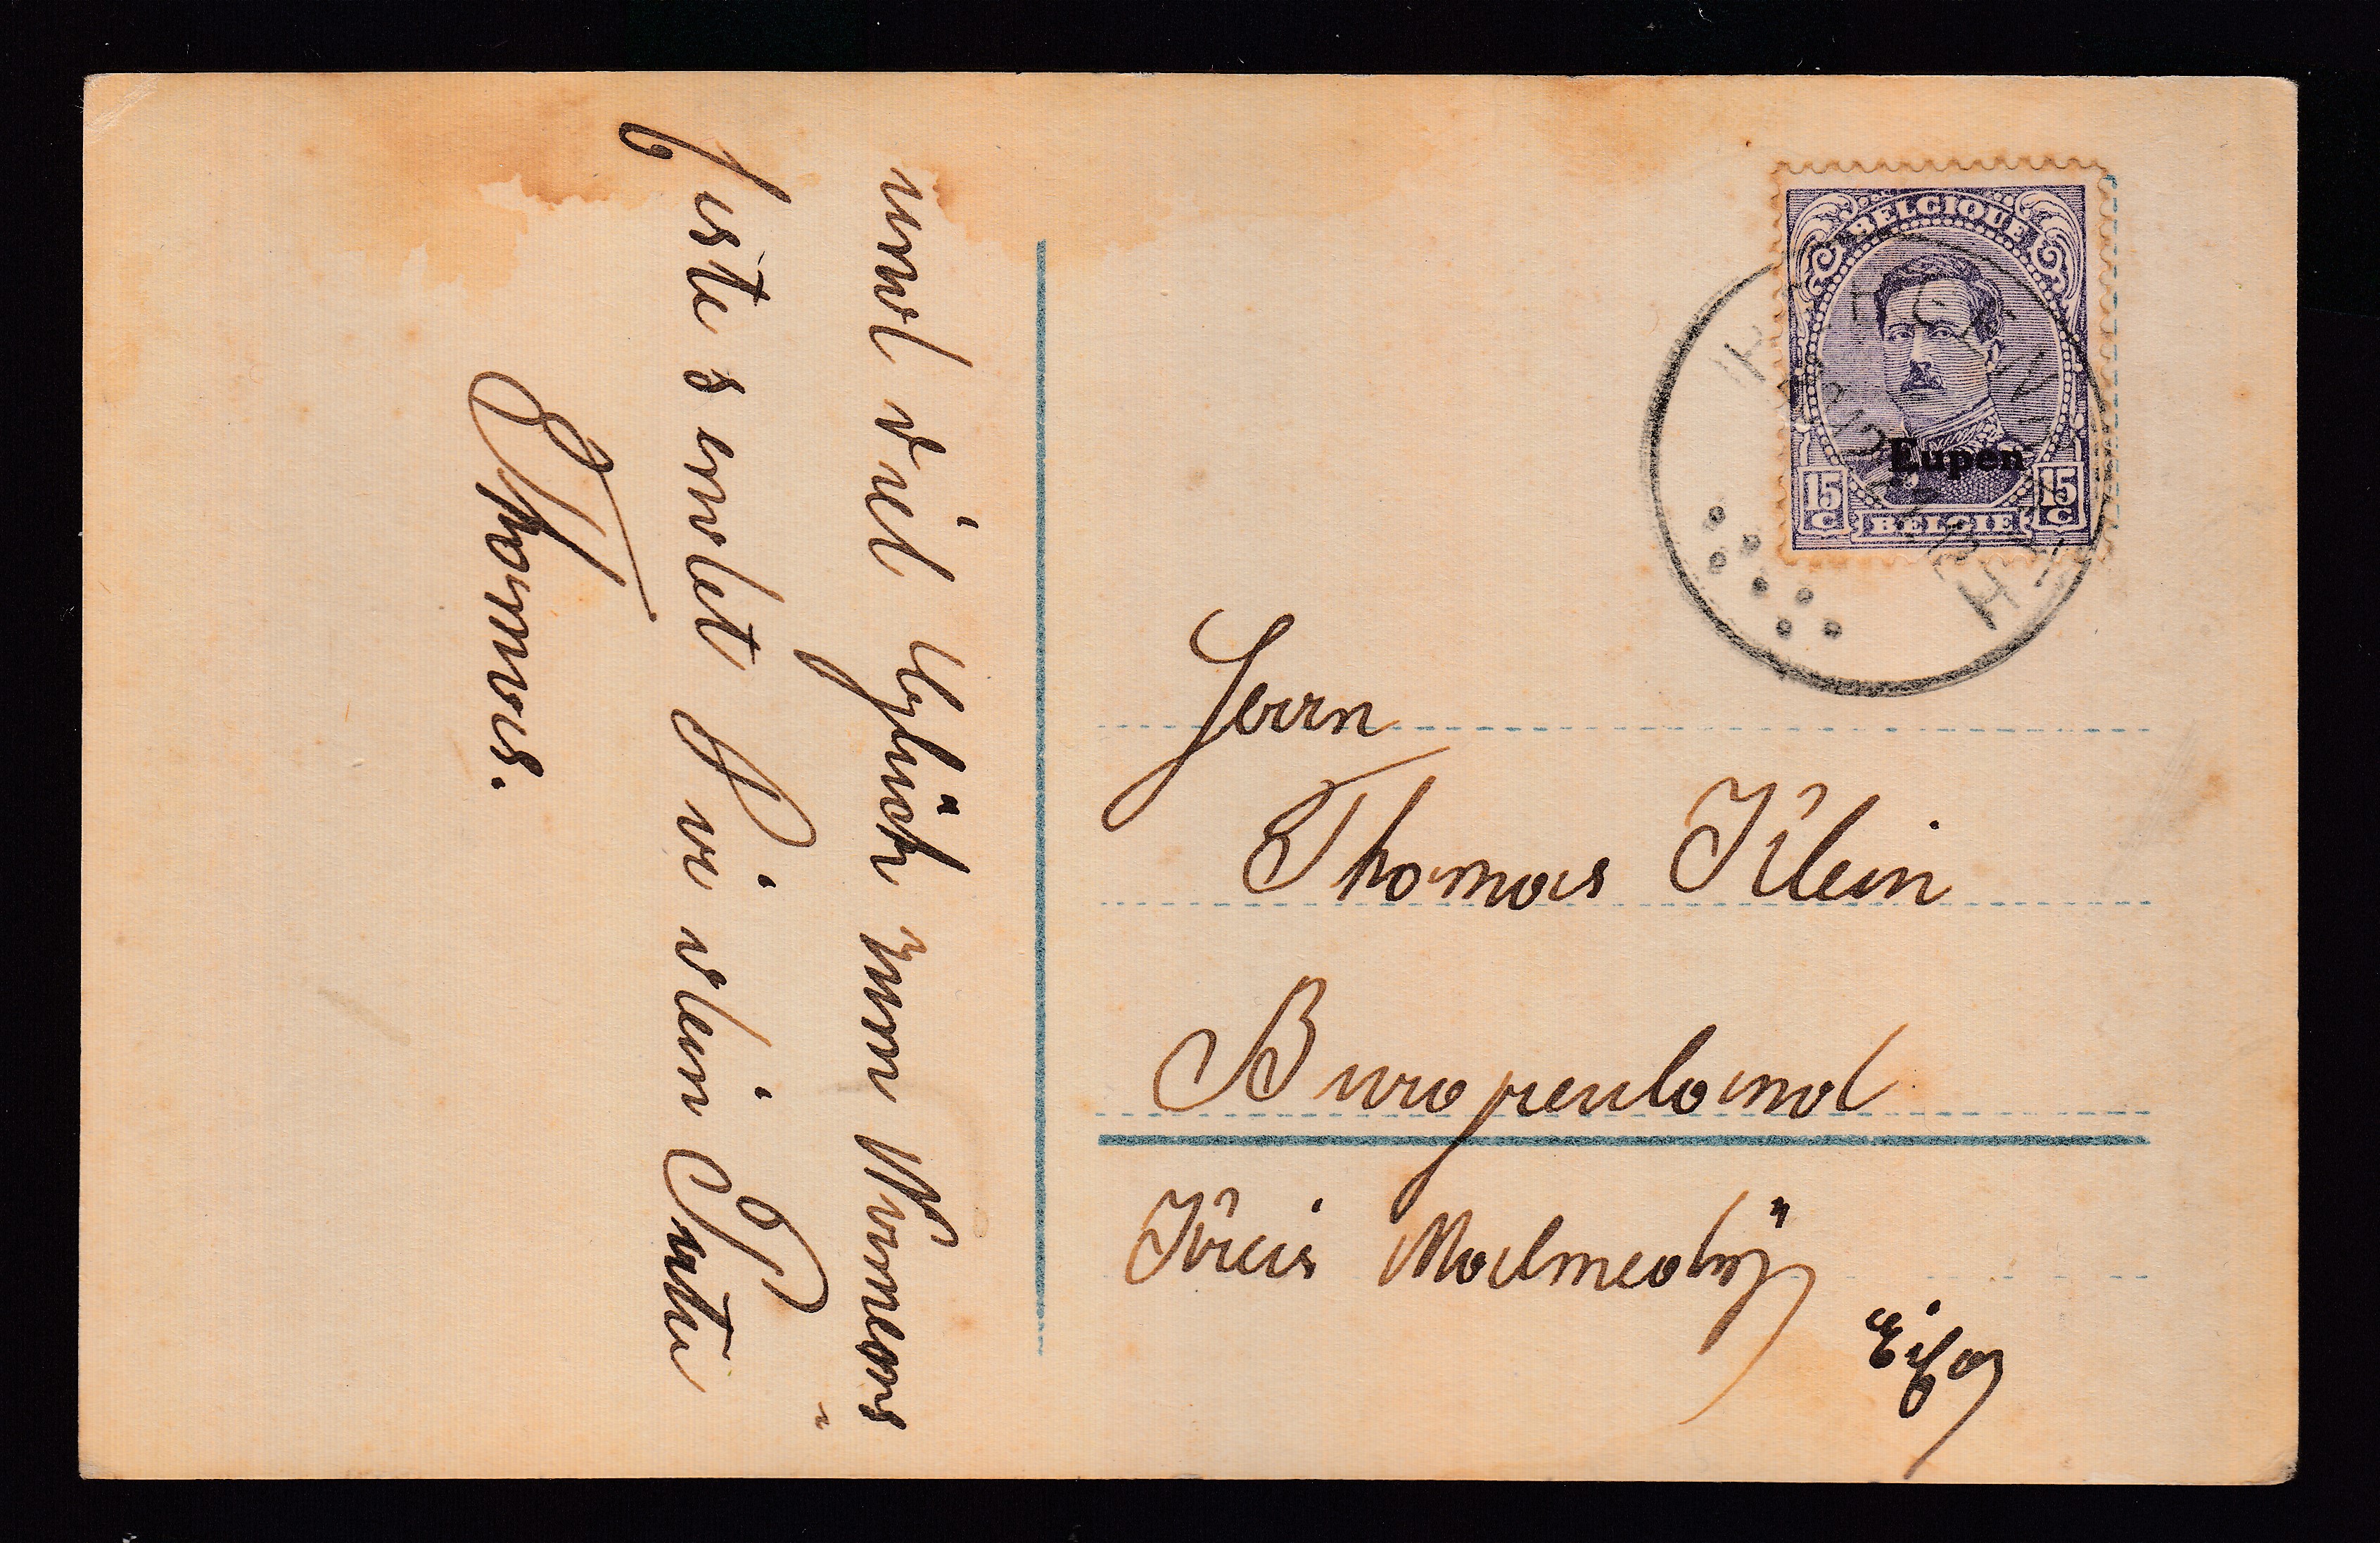 BELGIQUE
Eupen
15 C
BELGIË
15 C
und viel Glück zum Namens
feste sendet Dir dein Pate
Thomas.
Herrn
Thomas Klein
Burgreuland
Kreis Malmedÿ
Eifel